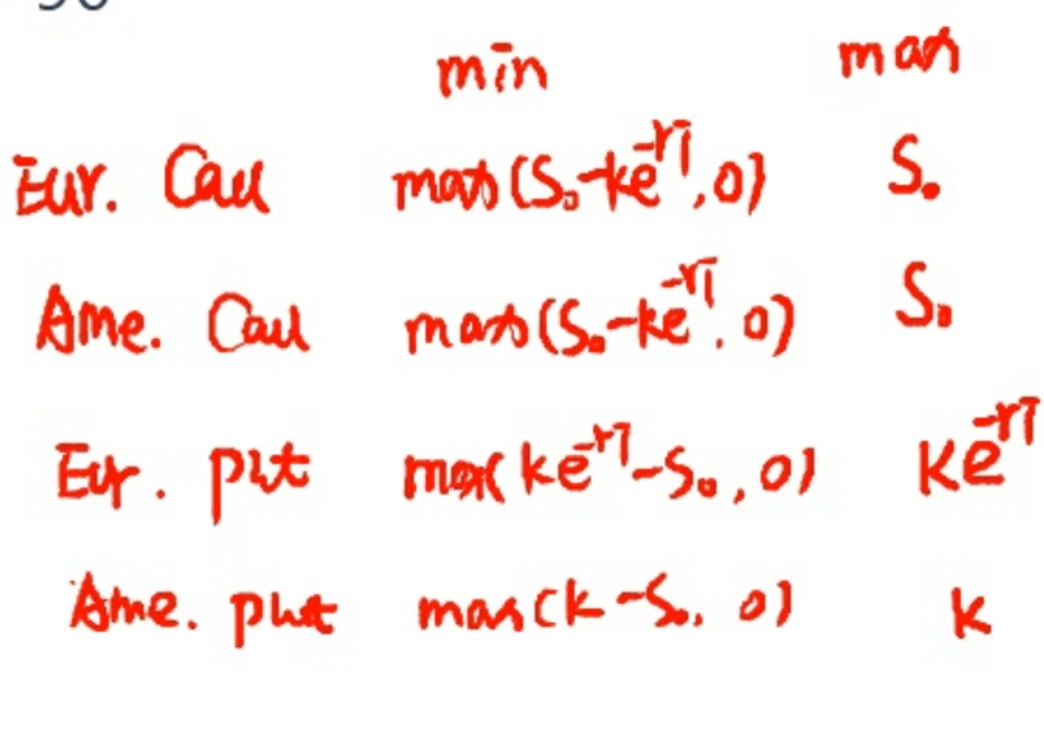 min max
Eur. Call max(S₀-ke^-rT, 0) S₀
Ame. Call max(S₀-ke^-rT, 0) S₀
Eur. put max(ke^-rT-S₀, 0) Ke^-rT
Ame. put max(k-S₀, 0) k